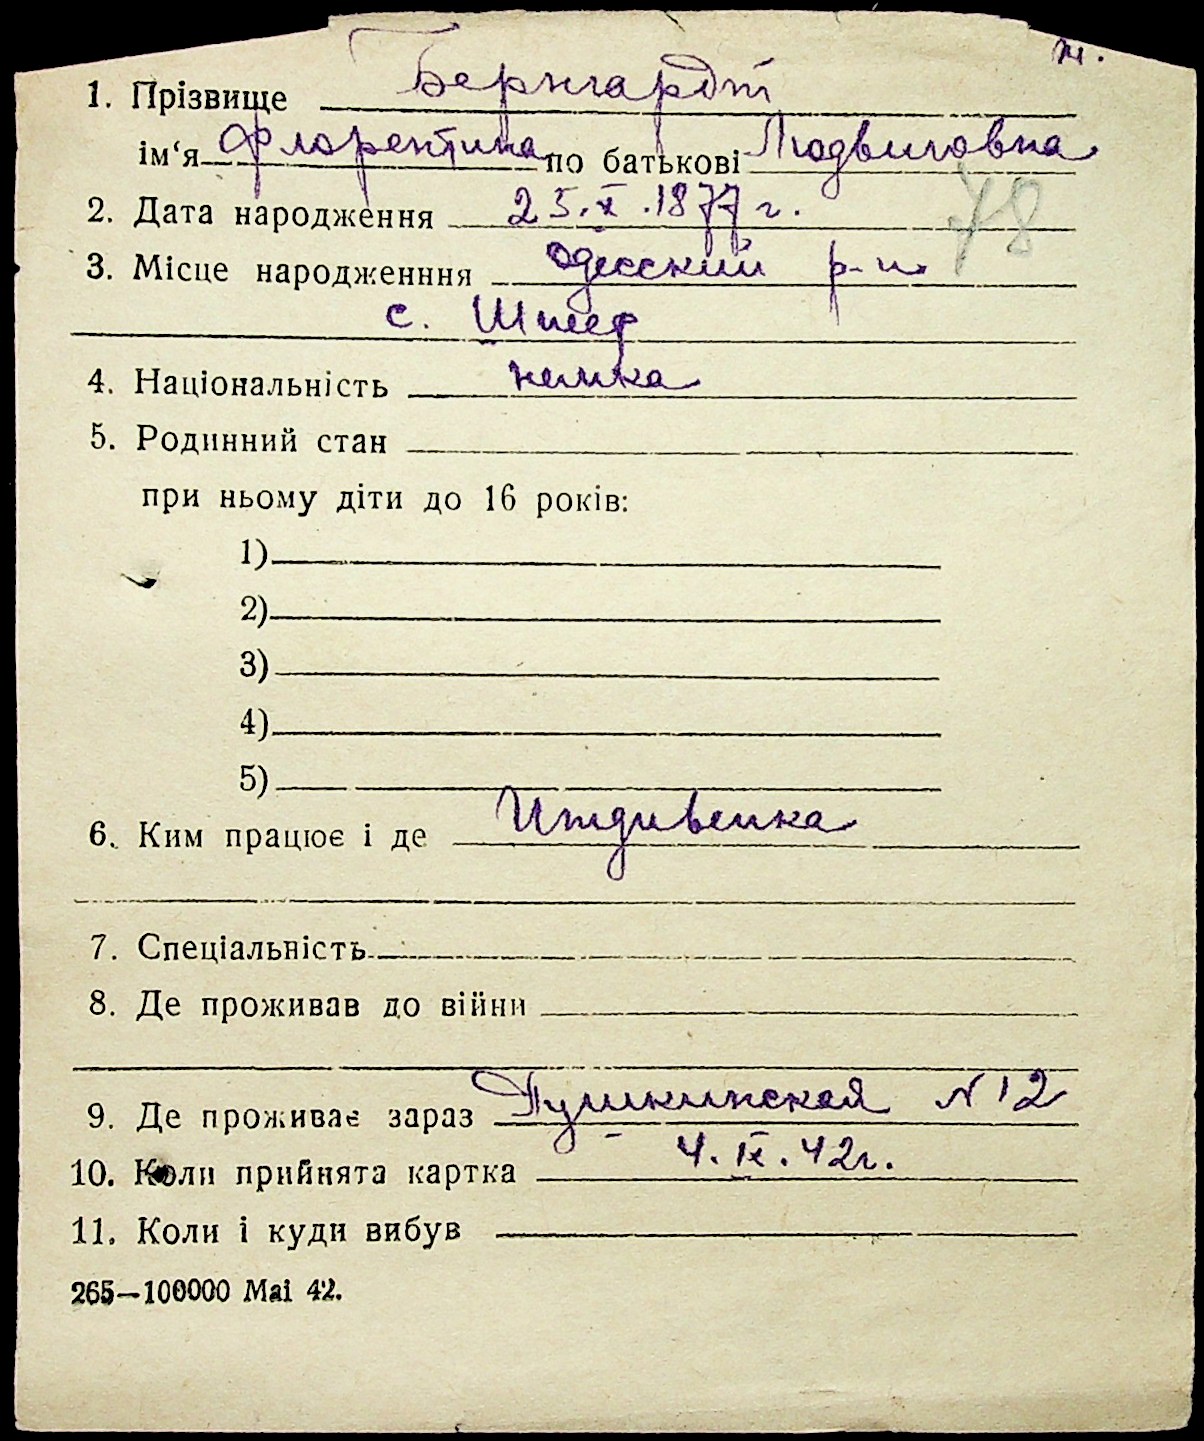 н.
1. Прізвище Бернгардт
ім‘я Флорентина по батькові Людвиговна
2. Дата народження 25.X.1877 г.
78
3. Місце народженння Одесский р-н.
с. Шпеер
4. Національність немка
5. Родинний стан
при ньому діти до 16 років:
1)
2)
3)
4)
5)
6. Ким працює і де Иждивенка
7. Спеціальність
8. Де проживав до війни
9. Де проживає зараз Пушкинская N 12
10. Коли прийнята картка 4.IX.42г.
11. Коли і куди вибув
265—100000 Mai 42.